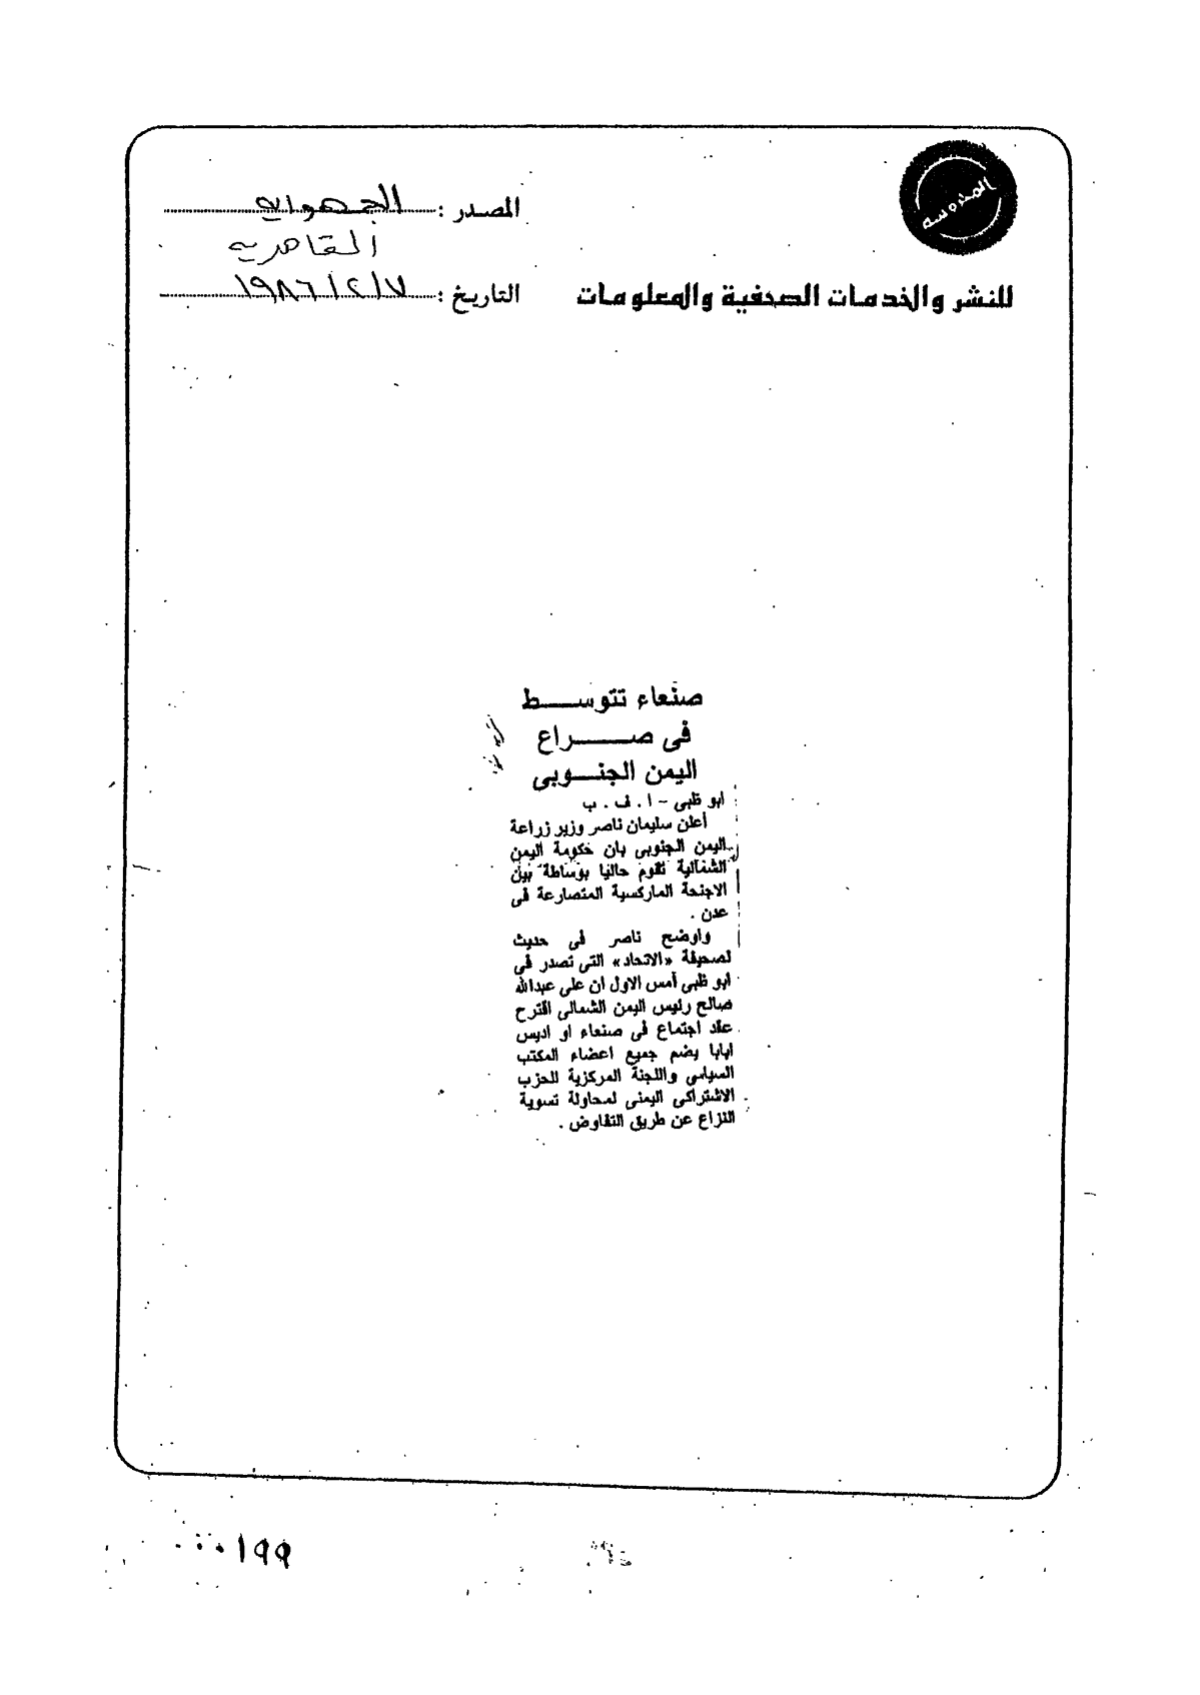 المدروسه
المصدر : الجمهورية
القاهرية
للنشر والخدمات الصحفية والمعلومات
التاريخ : ١٩٨٦/٢/٧
صنعاء تتوسط
فى صراع
اليمن الجنوبى
ابو ظبى - ا . ف . ب
أعلن سليمان ناصر وزير زراعة
اليمن الجنوبى بان حكومة اليمن
الشمالية تقوم حاليا بوساطة بين
الاجنحة الماركسية المتصارعة فى
عدن .
واوضح ناصر فى حديث
لصحيفة «الاتحاد» التى تصدر فى
ابو ظبى أمس الاول ان على عبدالله
صالح رئيس اليمن الشمالى اقترح
عقد اجتماع فى صنعاء او اديس
ابابا يضم جميع اعضاء المكتب
السياسى واللجنة المركزية للحزب
الاشتراكى اليمنى لمحاولة تسوية
النزاع عن طريق التفاوض .
٠٠٠١٩٩